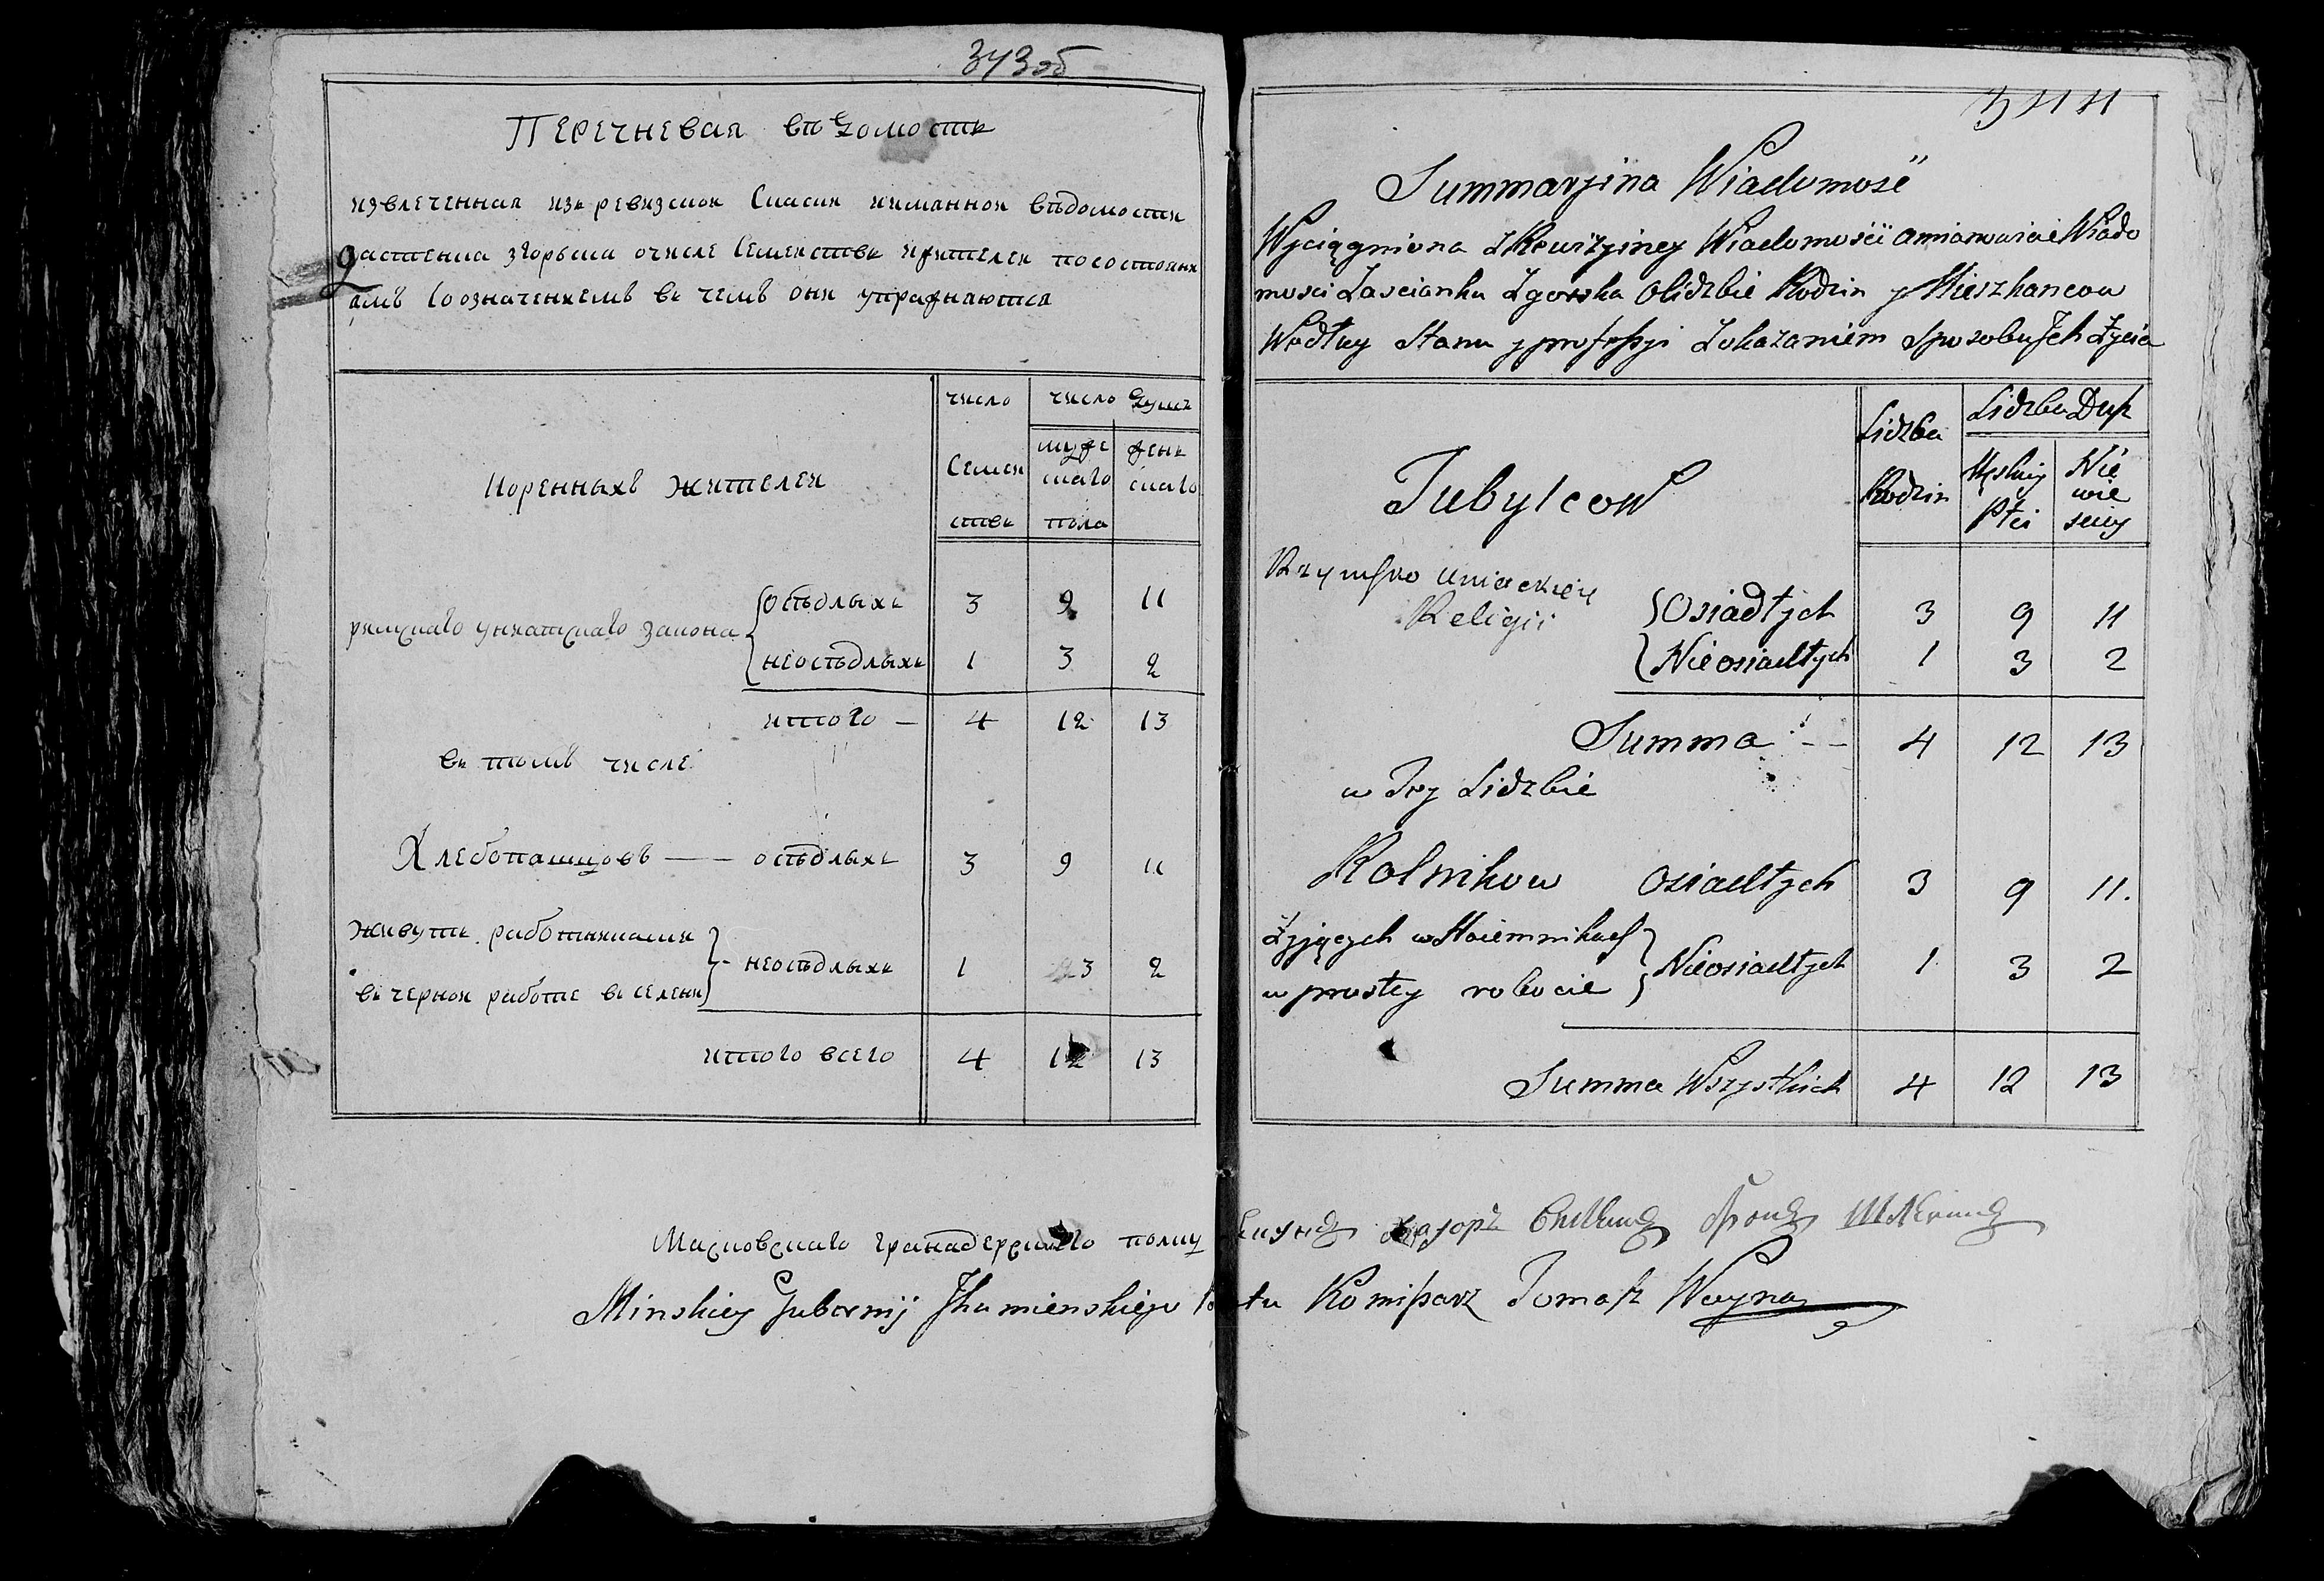 343об
Перечневая вѣдомость
извлеченная изъ ревизской Сказки именной вѣдомости
застенка згорска о числе Семействъ жителей по состояни
амъ Со означениемъ въ чемъ они упражнаются
число
число душъ
Коренныхъ жителей
Семей
ствъ
муже
скаго
пола
жен
скаго
римскаго униатскаго закона
осѣдлыхъ 3 9 11
неосѣдлыхъ 1 3 2
итого — 4 12 13
въ томъ числе
Хлебопашцовъ —— осѣдлыхъ 3 9 11
живутъ работниками
въ черной работе въ селени
неосѣдлыхъ 1 3 2
итого всего 4 12 13
344
Summaryina Wiadomosć
Wyciągniona z Rewizyiney Wiadomości
mosci Zascianku Zgorska o lidzbie Rodzin y Mieszkancow
Wedłuy Stanu y professyi z okazaniem Sposobu Jch Życia
Lidzba
Rodzin
Lidzba Dusz
Tubylcow
Męskiey
Płci
Nie
wie
sciey
Rzymsko Uniackiey
Religii
Osiadłych 3 9 11
Nieosiadłych 1 3 2
Summa -- 4 12 13
w Tey Lidzbie
Rolnikow Osiadłych 3 9 11.
Zyjących w Naiemnikach
w prostey robocie
Nieosiadłych 1 3 2
Summa Wszystkich 4 12 13
Московскаго гранадерскаго полку маіоръ
Minskiey Gubernij Jhumienskiego Komissarz Tomasz Woyna